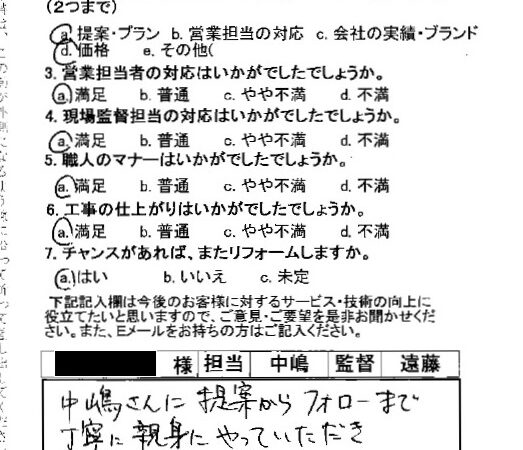 (2つまで)
a. 提案・プラン b. 営業担当の対応 c. 会社の実績・ブランド
d. 価格 e. その他(
3. 営業担当者の対応はいかがでしたでしょうか。
a. 満足 b. 普通 c. やや不満 d. 不満
4. 現場監督担当の対応はいかがでしたでしょうか。
a. 満足 b. 普通 c. やや不満 d. 不満
5. 職人のマナーはいかがでしたでしょうか。
a. 満足 b. 普通 c. やや不満 d. 不満
6. 工事の仕上がりはいかがでしたでしょうか。
a. 満足 b. 普通 c. やや不満 d. 不満
7. チャンスがあれば、またリフォームしますか。
a. はい b. いいえ c. 未定
下記記入欄は今後のお客様に対するサービス・技術の向上に
役立てたいと思いますので、ご意見・ご要望を是非お聞かせくだ
さい。また、Eメールをお持ちの方はご記入ください。
様 担当 中嶋 監督 遠藤
中嶋さんに 提案から フォローまで
丁寧に 親身に やっていただき